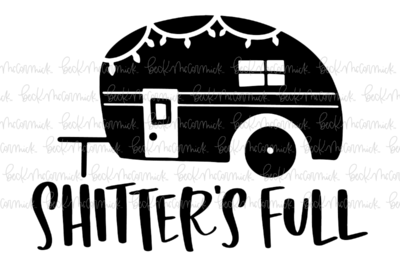 SHITTER'S FULL